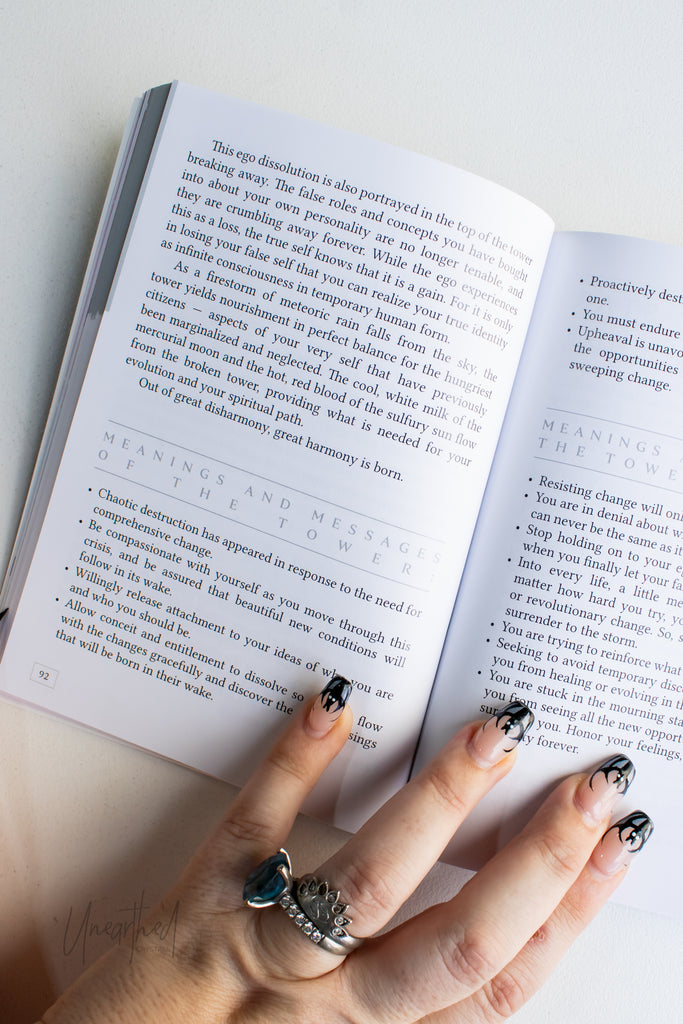 This ego dissolution is also portrayed in the top of the tower
breaking away. The false roles and concepts you have bought
into about your own personality are no longer tenable, and
they are crumbling away forever. While the ego experiences
this as a loss, the true self knows that it is a gain. For it is only
in losing your false self that you can realize your true identity
as infinite consciousness in temporary human form.
As a firestorm of meteoric rain falls from the sky, the
tower yields nourishment in perfect balance for the hungriest
citizens — aspects of your very self that have previously
been marginalized and neglected. The cool, white milk of the
mercurial moon and the hot, red blood of the sulfury sun flow
from the broken tower, providing what is needed for your
evolution and your spiritual path.
Out of great disharmony, great harmony is born.
MEANINGS AND MESSAGES
OF THE TOWER:
• Chaotic destruction has appeared in response to the need for
comprehensive change.
• Be compassionate with yourself as you move through this
crisis, and be assured that beautiful new conditions will
follow in its wake.
• Willingly release attachment to your ideas of who you are
and who you should be.
• Allow conceit and entitlement to dissolve so flow
with the changes gracefully and discover the
that will be born in their wake.
92
• Proactively
one.
• You must endure
• Upheaval is
the opportunities
sweeping change.
MEANINGS
THE
• Resisting change will
• You are in denial about
can never be the same as
• Stop holding on to your
when you finally let your
• Into every life, a little
matter how hard you try,
or revolutionary change. So,
surrender to the storm.
• You are trying to reinforce what
• Seeking to avoid temporary
you from healing or evolving in
• You are stuck in the mourning
you from seeing all the new
you. Honor your feelings,
forever.
Unearthed